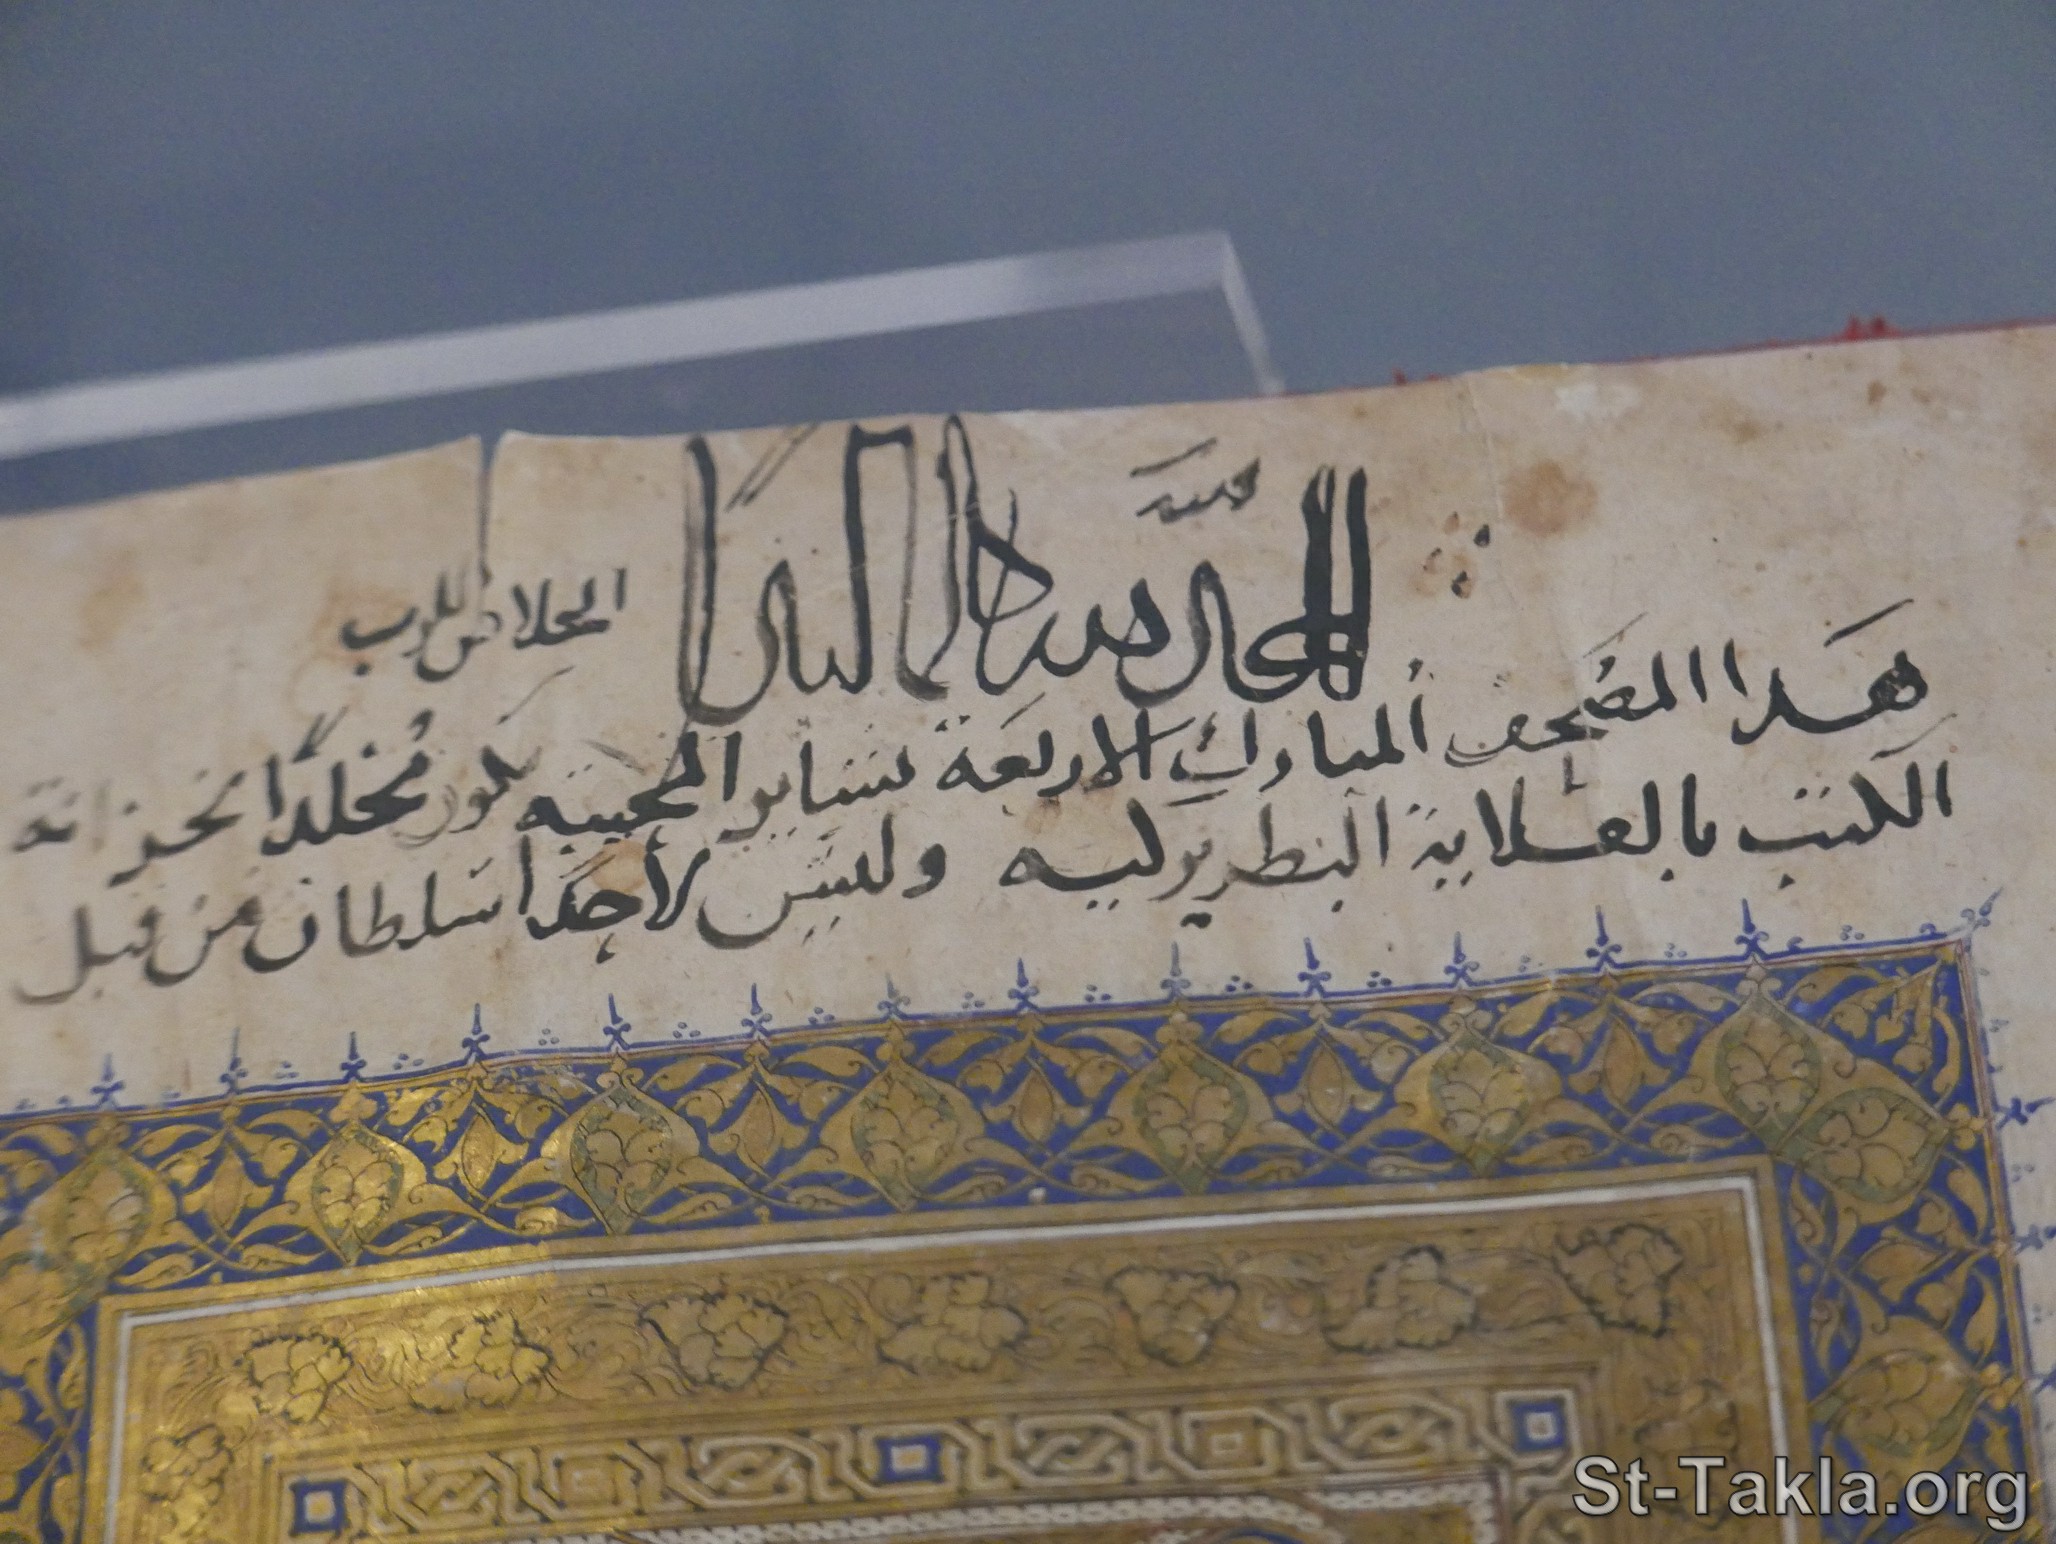 الخلاص للرب
هدا المصحف المبارك الاربعة بشاير المحييه يكون مخلدا بخزانة
الكتب بالقلاية البطريركيه وليس لأحدا سلطان من قبل
St-Takla.org